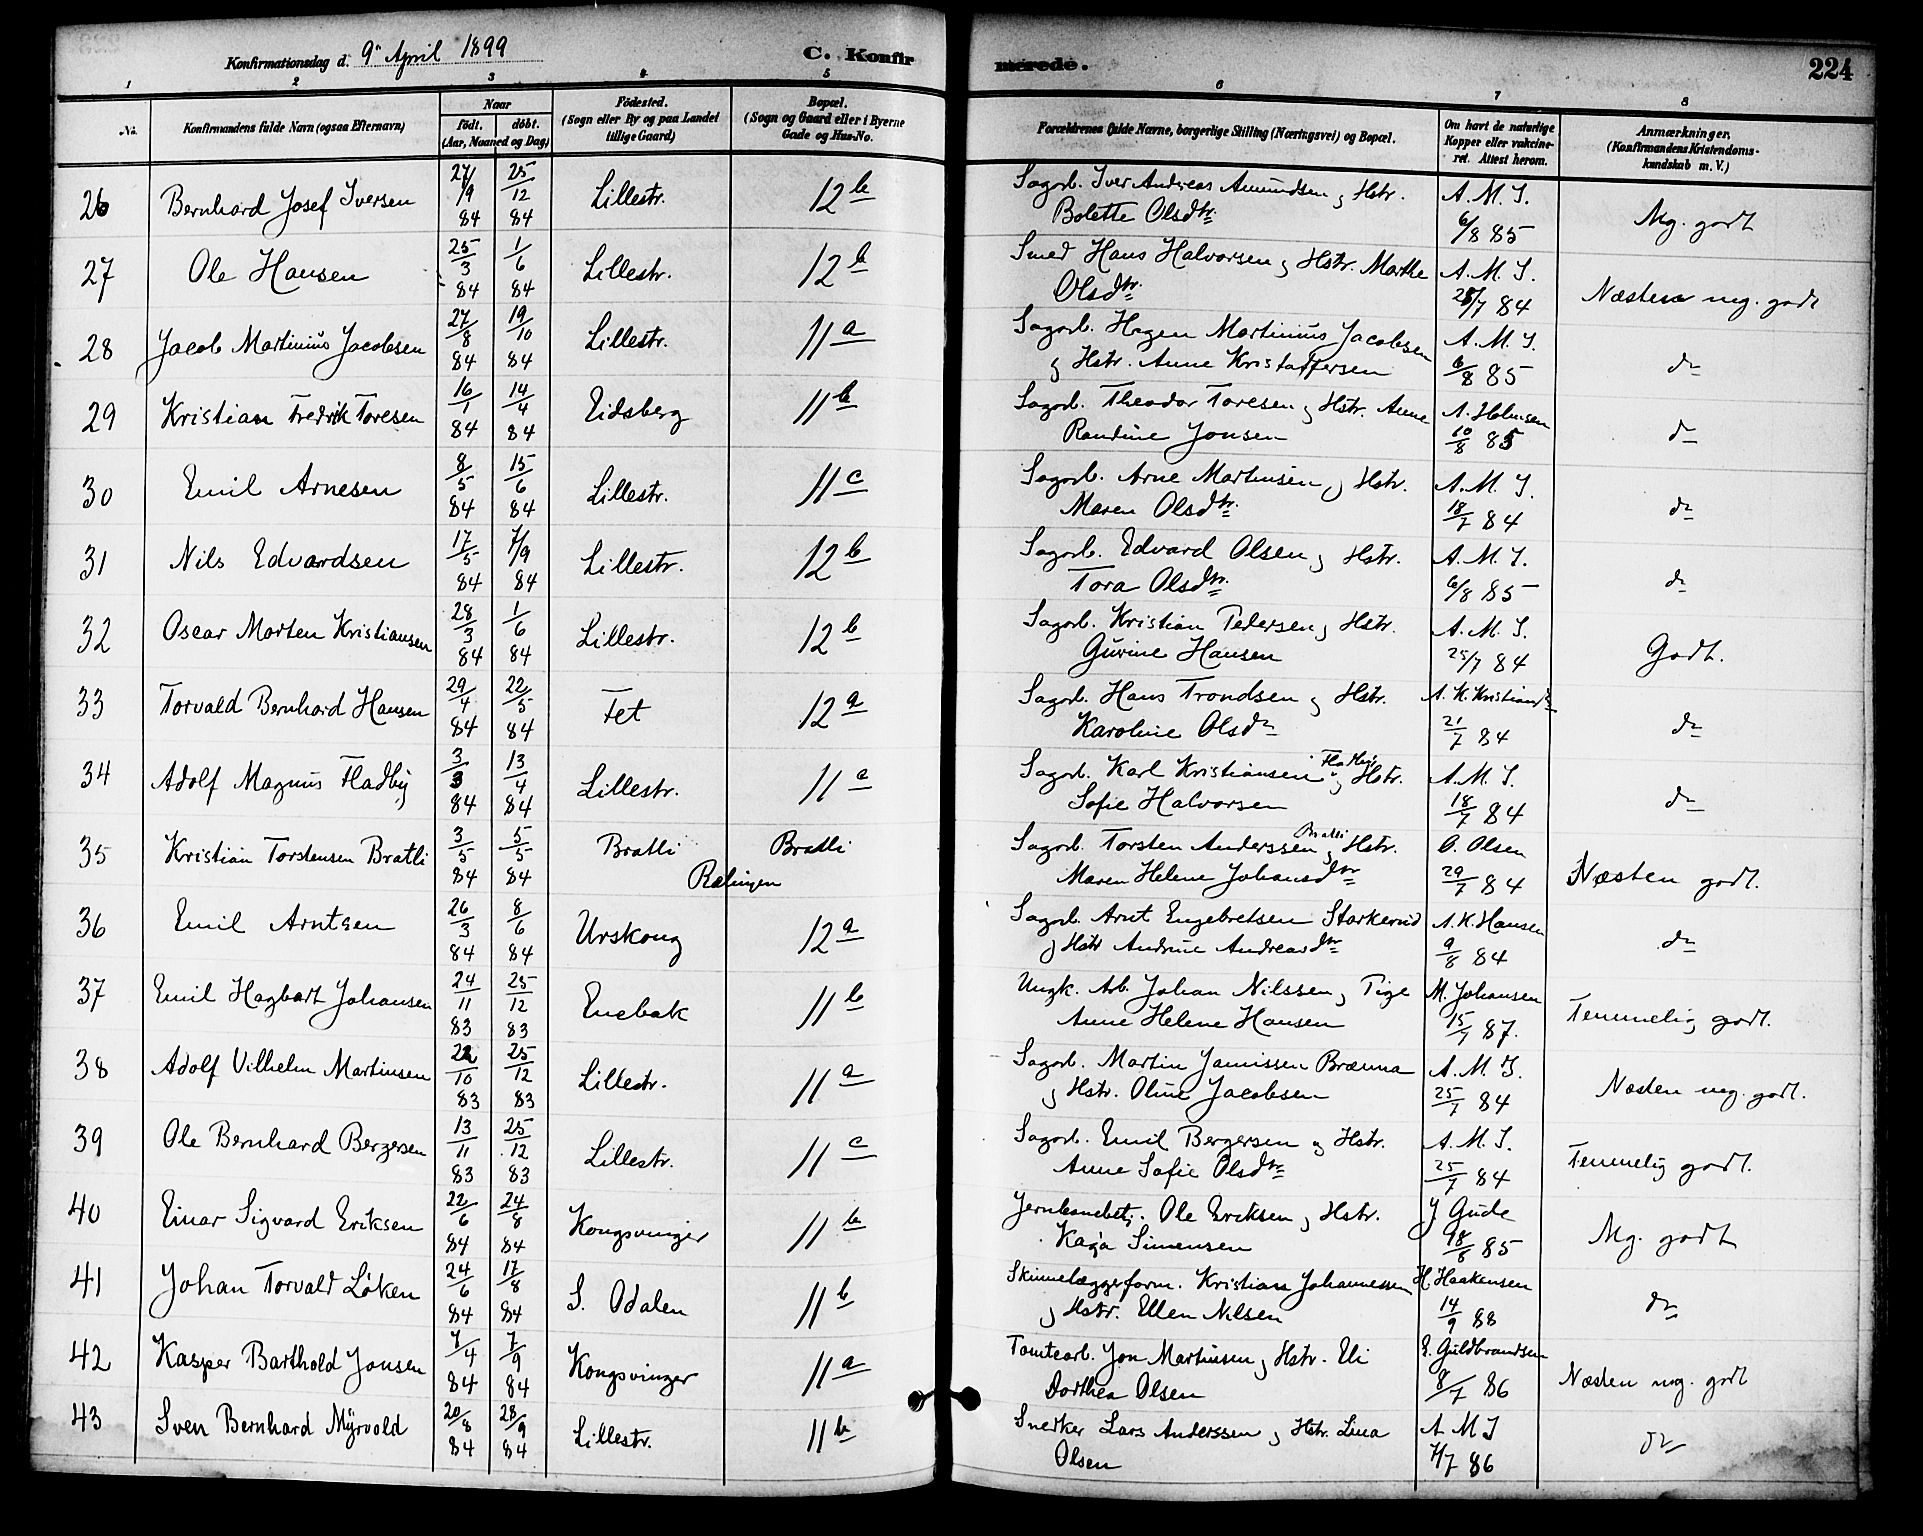 Konfirmationsdag d. 9. April 1899
C. Konfirmerede.
224
1 2 3 4 5 6 7 8
No.
Konfirmandens fulde Navn (ogsaa Efternavn)
Naar
födt. döbt.
(Aar, Maaned og Dag)
Födested.
(Sogn eller By og paa Landet
tillige Gaard)
Bopæl.
(Sogn og Gaard eller i Byerne
Gade og Hus-No.
Forældrenes fulde Navne, borgerlige Stilling (Næringsvei) og Bopæl.
Om havt de naturlige
Kopper eller vakcine-
ret. Attest herom.
Anmærkninger.
(Konfirmandens Kristendoms-
kundskab m. V.)
26 Bernhard Josef Iversen 27/9 84 25/12 84 Lillestr. 12b Sagarb. Iver Andreas Amundsen og Hstr. A. M. I.
Bolette Olsdtr. 6/8 85 Mg. godt
27 Ole Hansen 25/3 84 1/6 84 Lillestr. 12b Smed Hans Halvorsen og Hstr. Marthe A. M. I.
Olsdtr. 25/7 84 Næsten mg. godt
28 Jacob Martinius Jacobsen 27/8 84 19/10 84 Lillestr. 11a Sagarb. Hagen Martinius Jacobsen A. M. I.
og Hstr. Anne Kristoffersen 6/8 85 do
29 Kristian Fredrik Toresen 16/1 84 14/4 84 Eidsberg 11b Sagarb. Theodor Toresen og Hstr. Anne A. Holmsen
Randine Jonsen 10/8 85 do
30 Emil Arnesen 8/5 84 15/6 84 Lillestr. 11c Sagarb. Arne Martinsen og Hstr. A. M. I.
Maren Olsdtr. 18/7 84 do
31 Nils Edvardsen 17/5 84 7/9 84 Lillestr. 12b Sagarb. Edvard Olsen og Hstr. A. M. I.
Tora Olsdtr. 6/8 85 do
32 Oscar Morten Kristiansen 28/3 84 1/6 84 Lillestr. 12b Sagarb. Kristian Pedersen og Hstr. A. M. I.
Gurine Hansen 25/7 84 Godt.
33 Torvald Bernhard Hansen 29/4 84 22/5 84 Fet 12a Sagarb. Hans Trondsen og Hstr. A. K. Kristians
Karoline Olsdtr 21/7 84 do
34 Adolf Magnus Fladby 3/3 84 13/4 84 Lillestr. 11c Sagarb. Karl Kristiansen Fladby og Hstr. A. M. I.
Sofie Halvorsen 18/7 84 do
35 Kristian Torstensen Bratli 3/5 84 5/5 84 Bratli Bratli Rælingen Sagarb. Torsten Anderssen Bratli og Hstr. O. Olsen
Maren Helene Johansdtr 29/7 84 Næsten godt.
36 Emil Arntsen 26/3 84 8/6 84 Urskoug 12a Sagarb. Arnt Engebretsen Starkerud A. K. Hansen
og Hstr Andrine Andreasdtr 9/8 84 do
37 Emil Hagbart Johansen 24/11 83 25/12 83 Enebak 11b Ungk. Arb. Johan Nilssen og Pige M. Johansen
Anne Helene Hansen 15/7 87. Temmelig godt.
38 Adolf Vilhelm Martinsen 22/10 83 25/12 83 Lillestr. 11a Sagarb. Martin Jamissen Brænna A. M. I.
og Hstr. Oline Jacobsen 25/7 84 Næsten mg. godt.
39 Ole Bernhard Bergersen 13/11 83 25/12 83 Lillestr. 11c Sagarb. Emil Bergersen og Hstr. A. M. I.
Anne Sofie Olsdtr 25/7 84 Temmelig godt.
40 Einar Sigvard Eriksen 22/6 84 24/8 84 Kongsvinger 11b Jernbanebetj. Ole Eriksen og Hstr. J Gude
Kaja Simensen 18/8 85 Mg. godt
41 Johan Torvald Löken 24/6 84 17/8 84 S. Odalen 11b Skinnelæggerform. Kristian Johannessen H. Haakensen
og Hstr. Ellen Nilsen 14/9 88 do
42 Kasper Barthold Jonsen 7/4 84 7/9 84 Kongsvinger 11a Tomtearb. Jon Martinsen og Hstr. Eli E. Guldbrandsen
Dorthea Olsen 8/7 86 Næsten mg. godt
43 Sven Bernhard Myrvold 20/8 84 28/9 84 Lillestr. 11b Snedker Lars Anderssen og Hstr. Lina A M I
Olsen 7/7 86 do